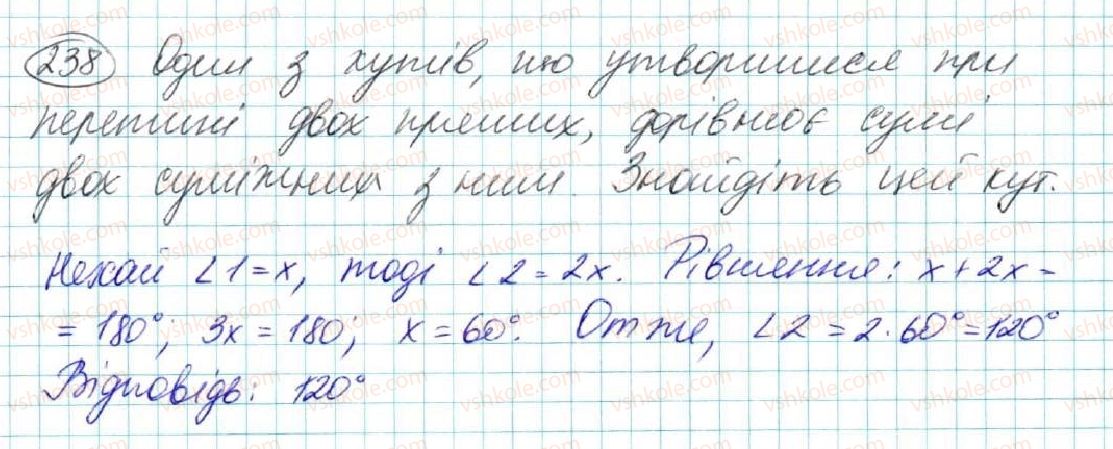 238 Один з кутів, що утворилися при
перетині двох прямих, дорівнює сумі
двох суміжних з ним. Знайдіть цей кут.
Нехай ∠1=x, тоді ∠2=2x. Рівняння: x+2x=
=180°; 3x=180; x=60°. Отже, ∠2=2·60°=120°
Відповідь: 120°